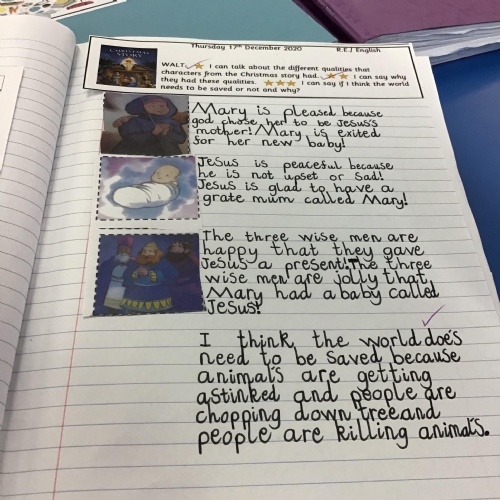 CHRISTMAS
STORY
Thursday 17th December 2020 R.E./ English
WALT: I can talk about the different qualities that
characters from the Christmas story had. I can say why
they had these qualities. I can say if I think the world
needs to be saved or not and why?
Mary is pleased because
god chose her to be Jesus's
mother! Mary is exited
for her new baby!
Jesus is peaceful because
he is not upset or Sad!
Jesus is glad to have a
grate mum called Mary!
The three wise men are
happy that they gave
Jesus a present! The three
wise men are jolly that
Mary had a baby called
Jesus!
I think the world does
need to be saved because
animals are getting
astinked and people are
chopping down tree and
people are killing animals.